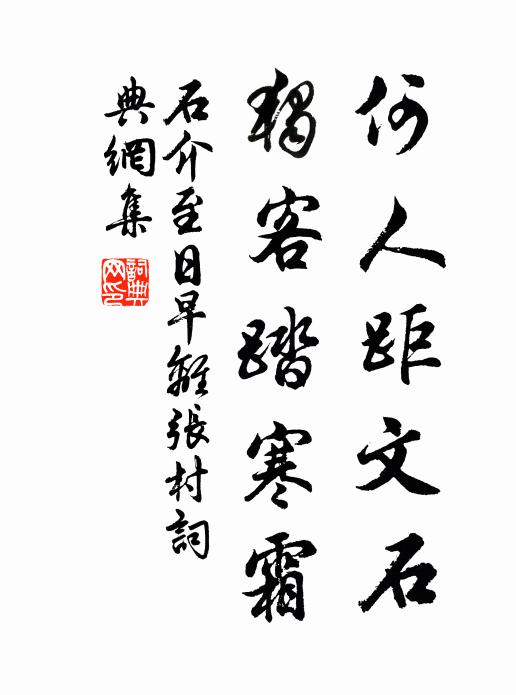 何人距文石
獨客踏寒霜
石介至日早離張村詞
典網集
詞典
网印